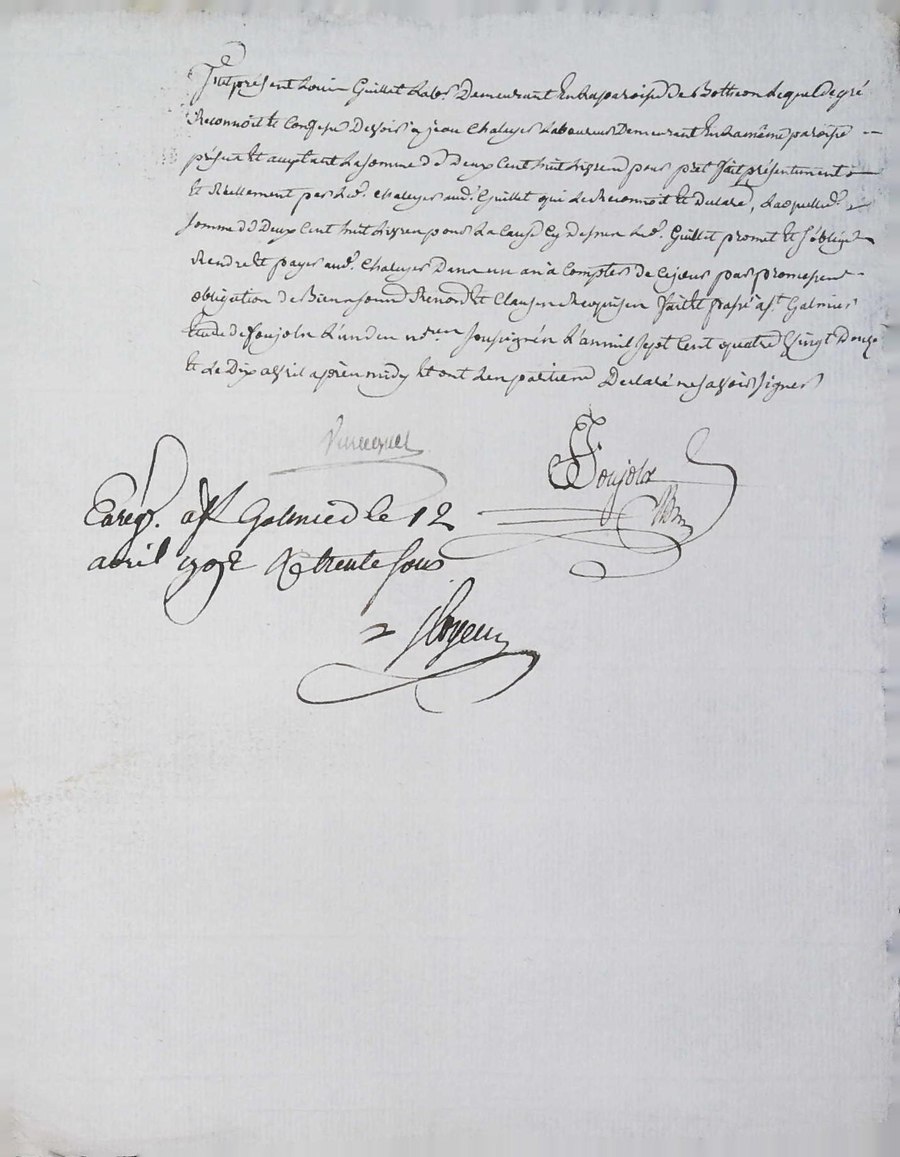 fut présent Louis Guillet Labr. Demeurant En La paroisse de Botheon Lequel de gré
Reconnoit Et Confesse Devoir a jean Chaleyer Laboureur Demeurant En La même paroisse
présent Et acceptant La somme de Deux Cent huit Livres pour prêt fait présentement
Et Réellement par Led. Chaleyer aud. Guillet qui Le Reconnoit Et Declare, Laquelled.
somme de Deux Cent huit Livres pour La Cause Cy Dessus Led. Guillet promet Et s'oblige
Rendre Et payer aud. Chaleyer Dans un an a Compter de Cejour par promesses
obligation de Biens soumis Renons Et Clauses Requises fait Et passé a St. Galmier
Etude de foujols L'un des nres. soussignés L'an mil sept Cent quatre Vingt Douze
Et Le Dix avril après midy Et ont Les parties Declaré ne savoir signer
foujols
Enregr. a St Galmier le 12
avril 1792 R trente sous